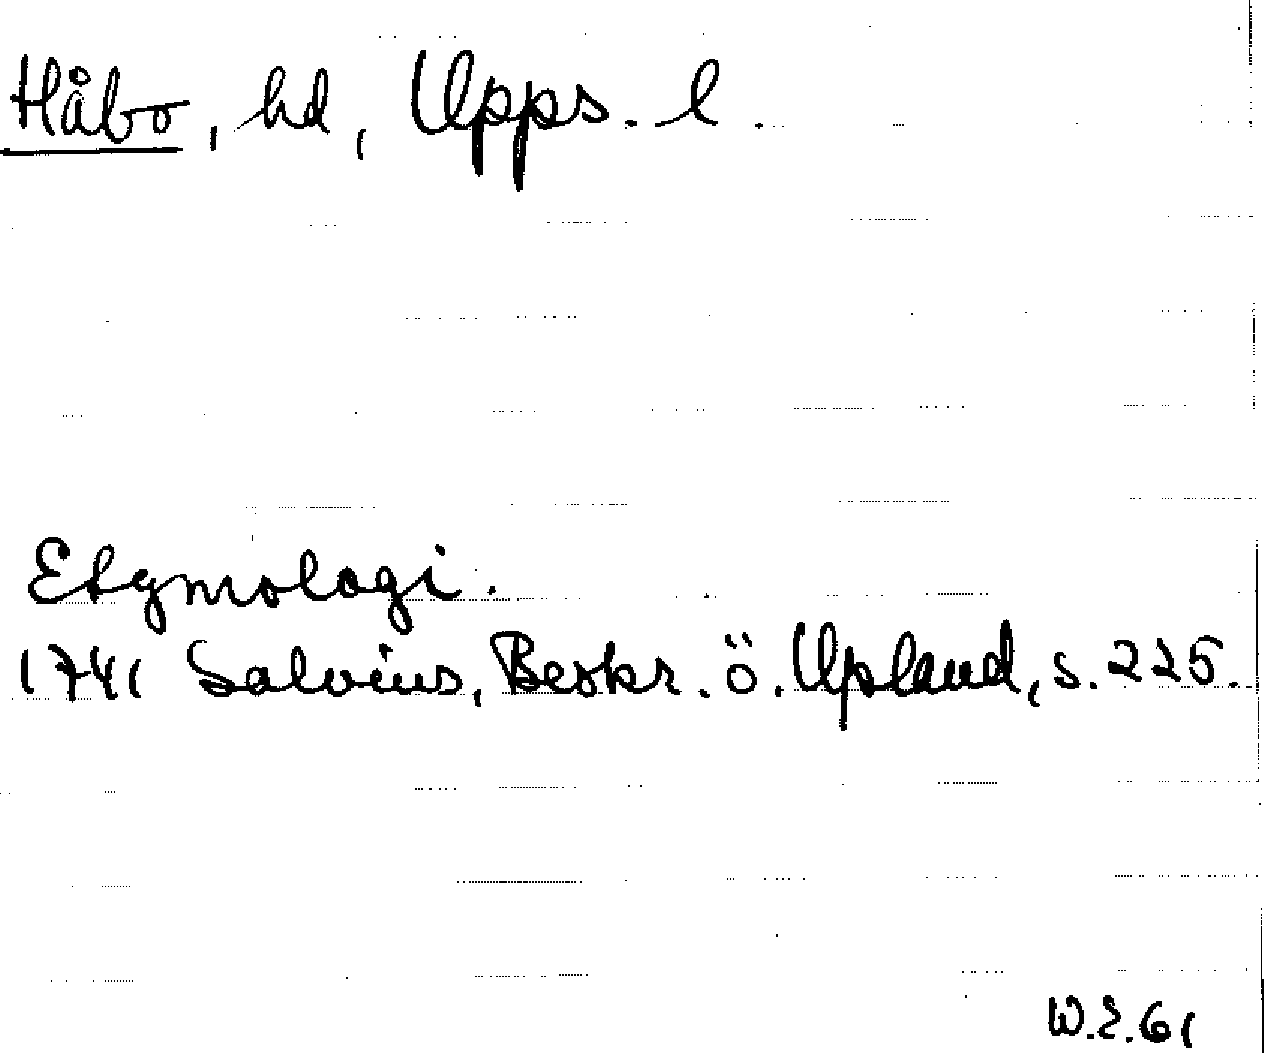 Håbo, hd, Upps. l.
Etymologi.
1741 Salvius, Beskr. ö. Upland, s. 225.
W.E.61